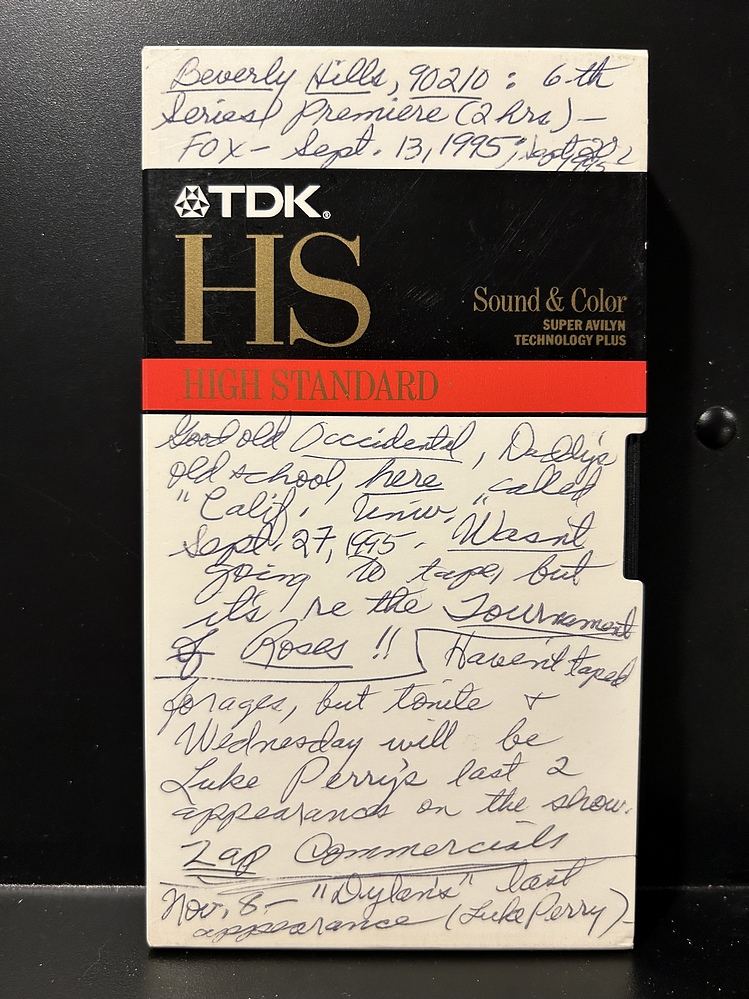 Beverly Hills, 90210 : 6th
Series Premiere (2 hrs) –
FOX – Sept. 13, 1995; Sept. 20,
1995
TDK®
HS
Sound & Color
SUPER AVILYN
TECHNOLOGY PLUS
HIGH STANDARD
Good old Occidental, Daddy's
old school, here called
"Calif. Univ."
Sept. 27, 1995. Wasn't
going to tape, but
it's re the Tournament
of Roses !! Haven't taped
for ages, but tonite +
Wednesday will be
Luke Perry's last 2
appearances on the show.
Zap Commercials
Nov. 8 – "Dylan's" last
appearance (Luke Perry) –